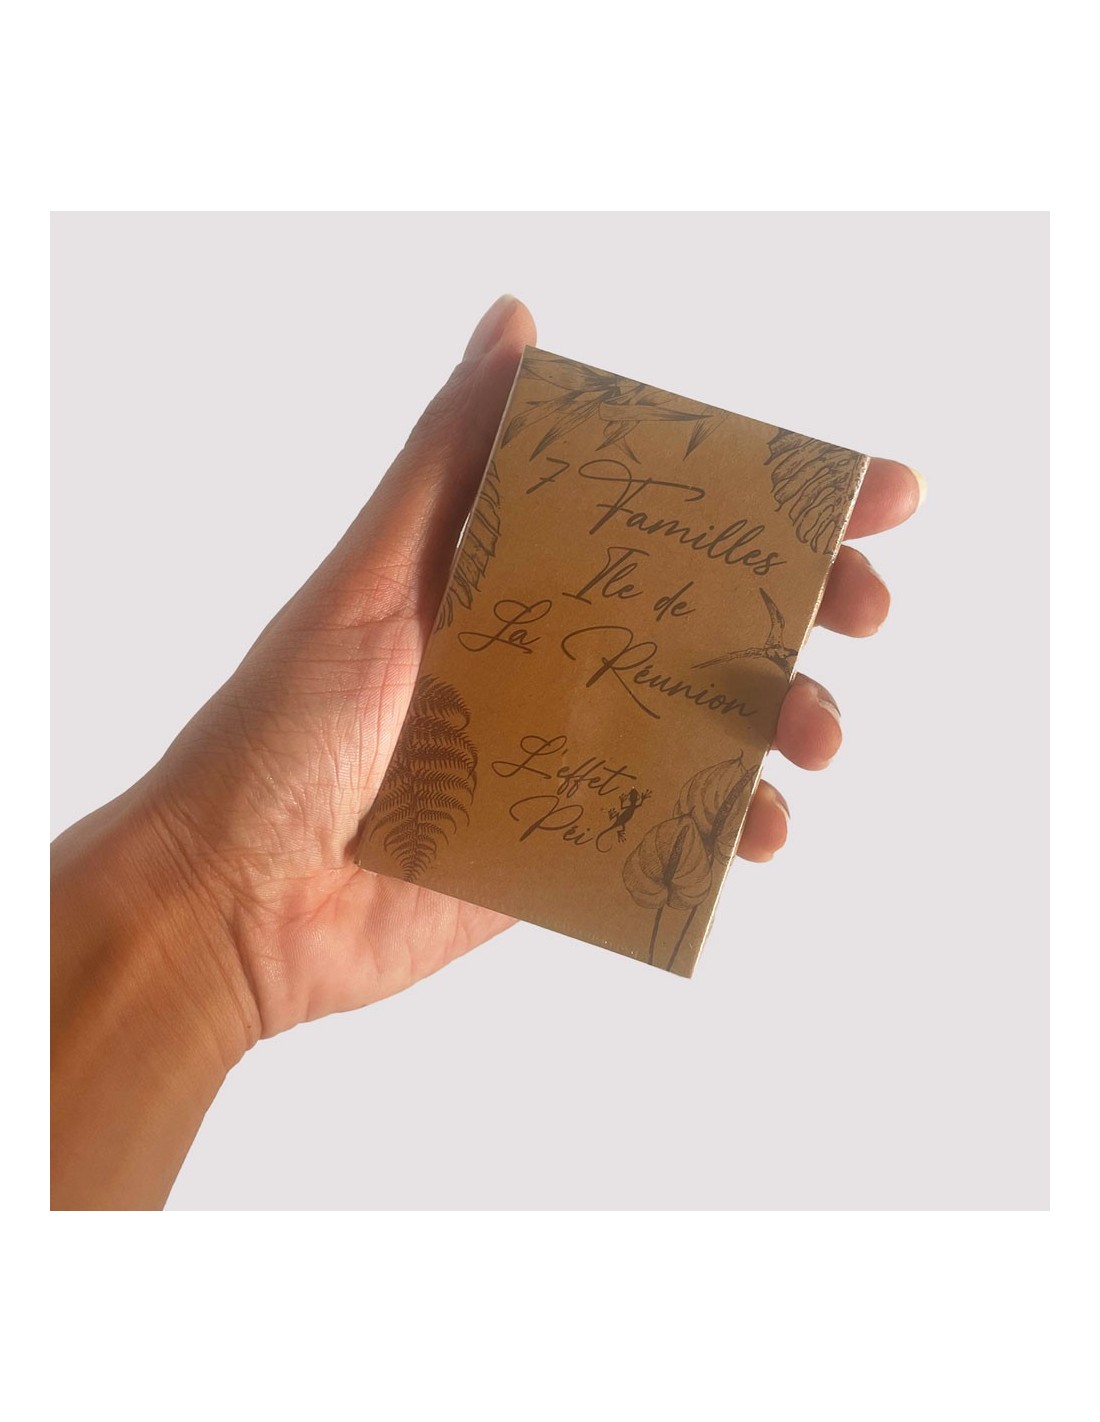 7 Familles
Ile de
La Réunion
L'effet
Péi